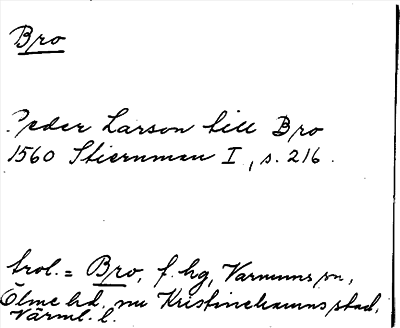 Bro
Peder Larson till Bro
1560 Stiernman I, s. 216.
trol. = Bro, f. hg, Varnums sn,
Ölme hd, nu Kristinehamns stad,
Värml. l.